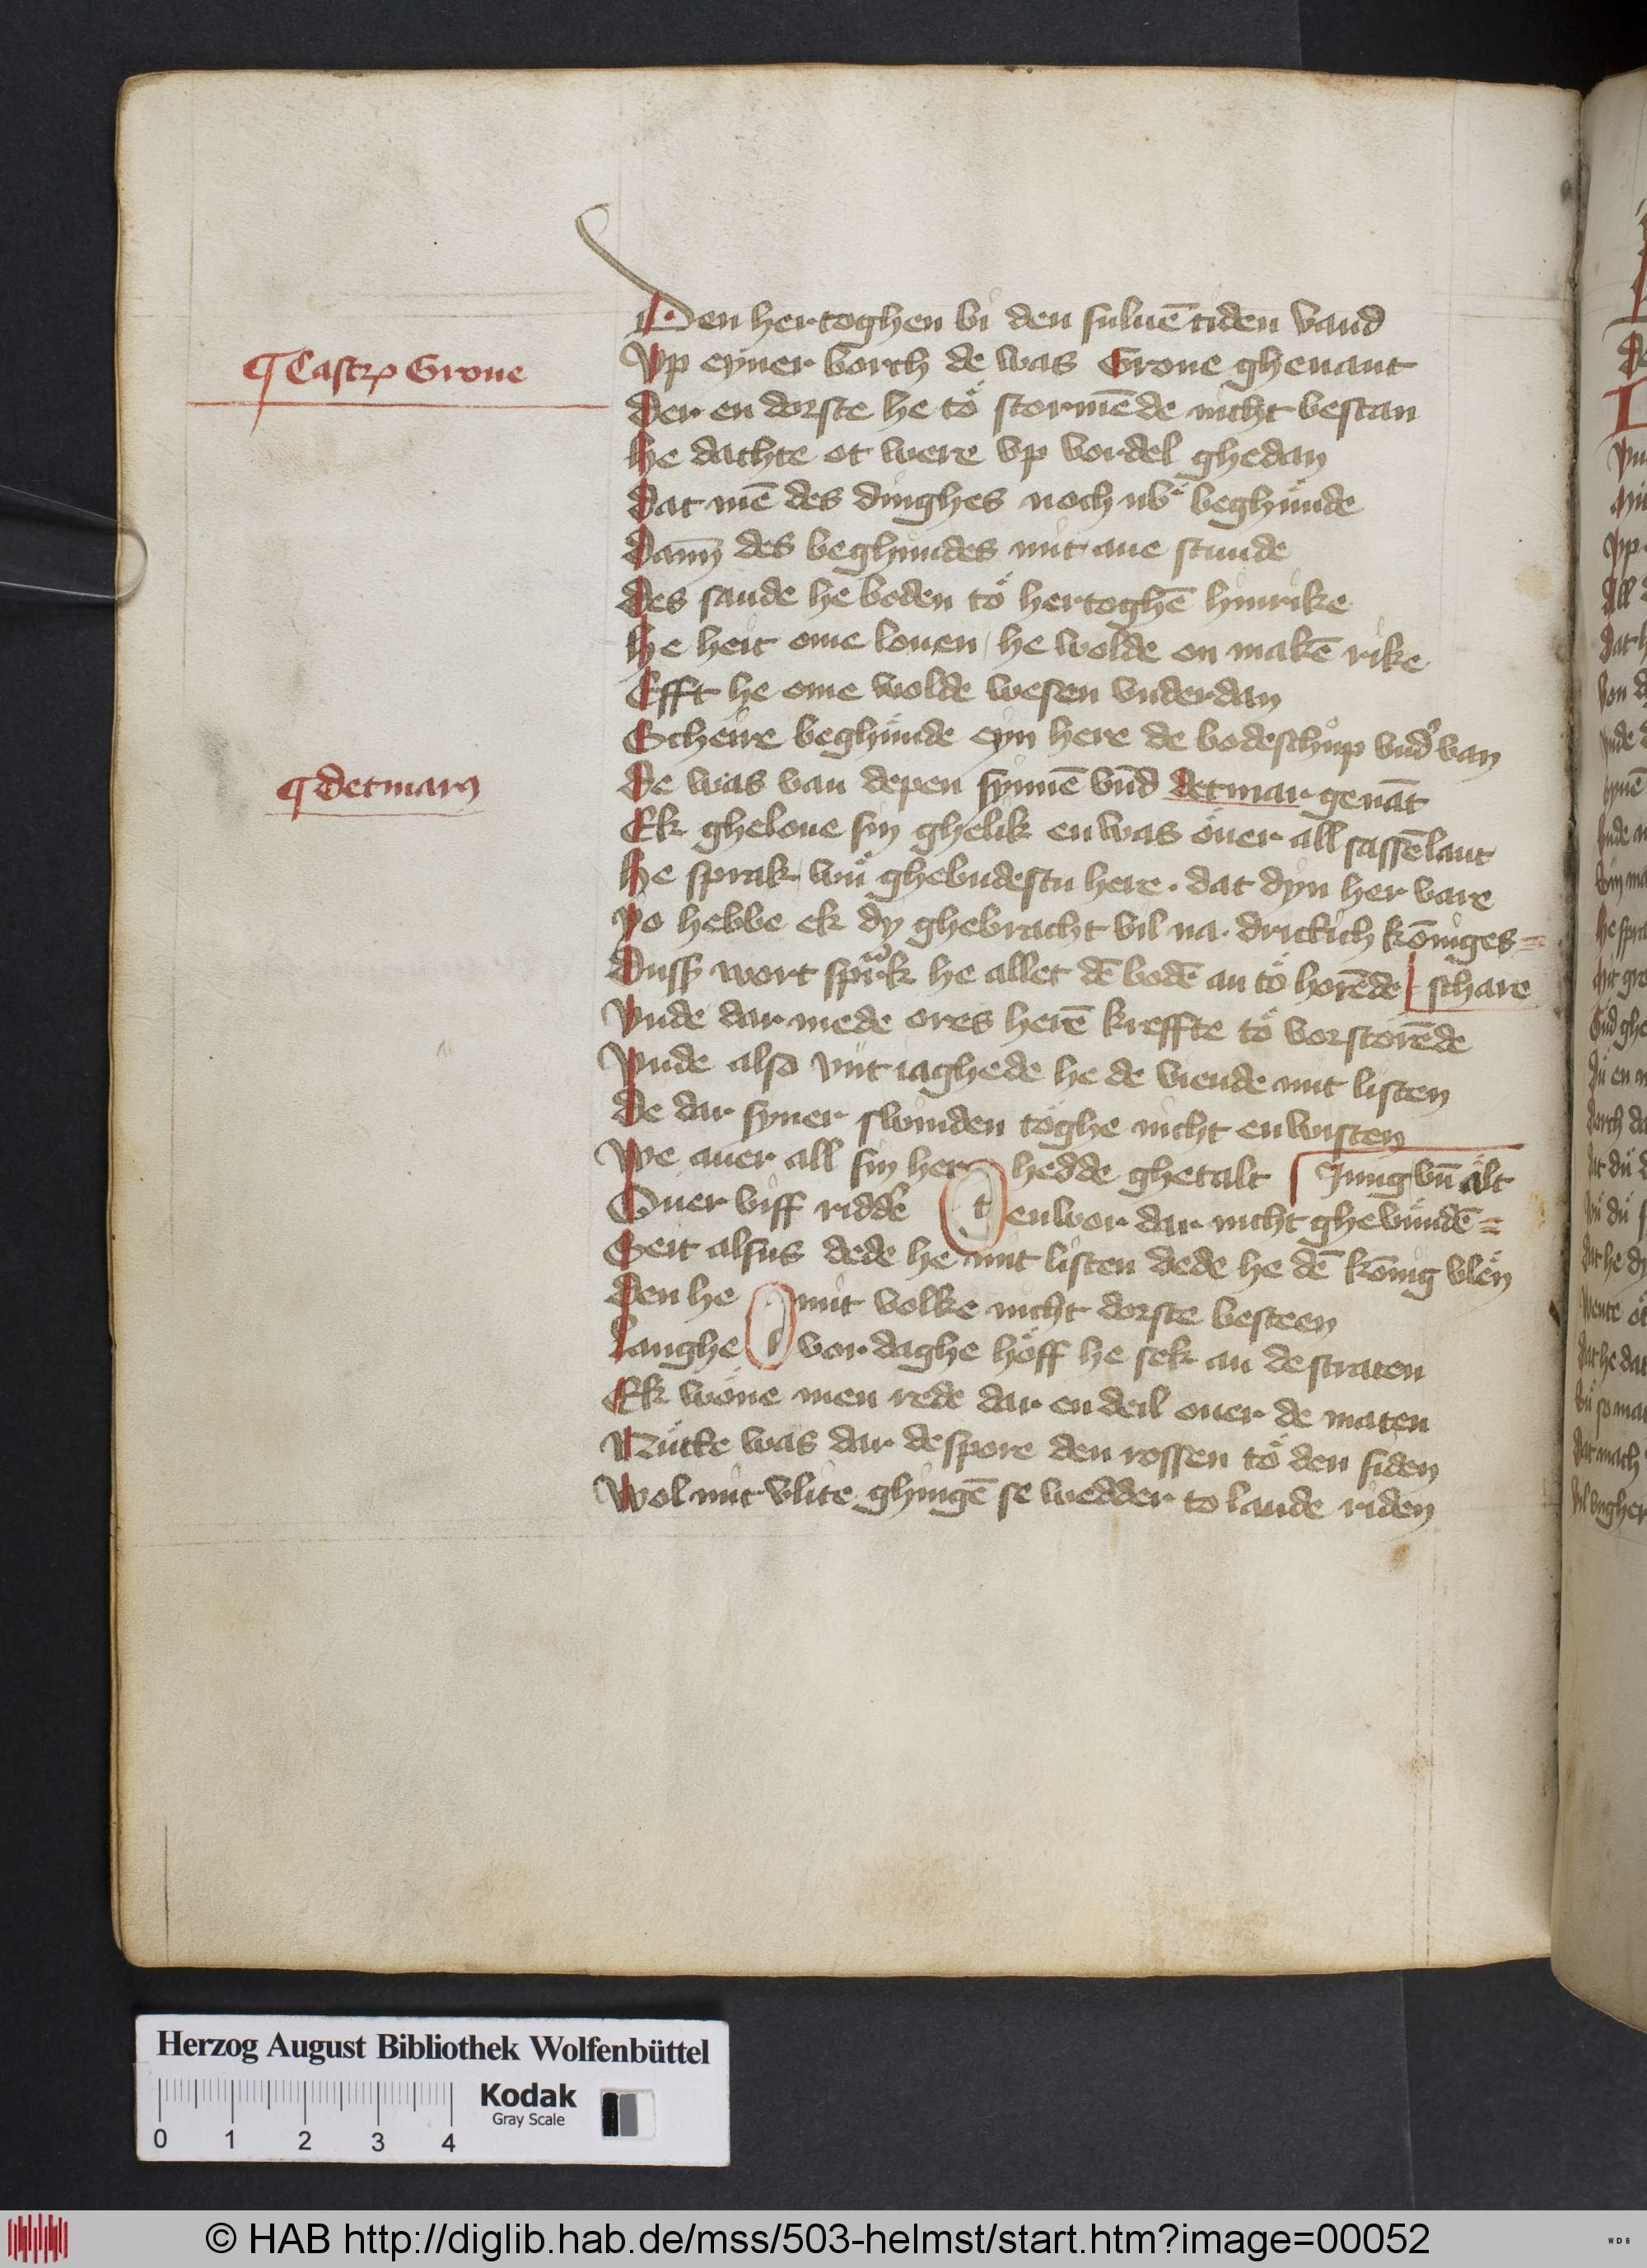 Den hertoghen bi den suluē tiden vand
¶ Castrꝫ Grone
Vp eyner borch de was Grone ghenant
Der en dorste he tö stormēde nicht bestan
He dachte ot were vp vordel ghedan
Dat mē des dinghes noch beghünde
Dann des beghundes mit ane stunde
Des sande he boden tö hertoghē hinrike
He heit ome louen he wolde on makē rike
Efft he ome wolde wesen vnderdan
Scheire beghünde eyn here de bodeschup vnd' van
¶ detmarꝫ
De was van depen synnē vnd detmar genāt
Ek gheloue sin ghelik en was öuer all sassēlant
He sprak wu ghebudestu here · dat dyn her vare
Yo hebbe ek dy ghebracht vil na drittich königes =
Dussz wort sprak he allet dē bodē an tö horēde schare
Vnde dar mede ores herē kreffte tö vorstorēde
Vnde also vnt iaghede he de viende mit listen
De dar syner swinden töghe nicht en wusten
We auer all sin her hedde ghetalt Jung vn̄ ält
Ouer viff ridde t en wor dar nicht ghewundē =
Seit alsus dede he mit listen dede he dē könig vlën
Den he mit volke nicht dorste besteen
Langhe vor daghe höff he sek an de straten
Ek wöne men rede dar en deil ouer de maten
Nütte was dar de spore den rossen tö den siden
Wol mit vlite ghingē se wedder to lande riden
Herzog August Bibliothek Wolfenbüttel
Kodak
Gray Scale
0 1 2 3 4
© HAB http://diglib.hab.de/mss/503-helmst/start.htm?image=00052
WDB